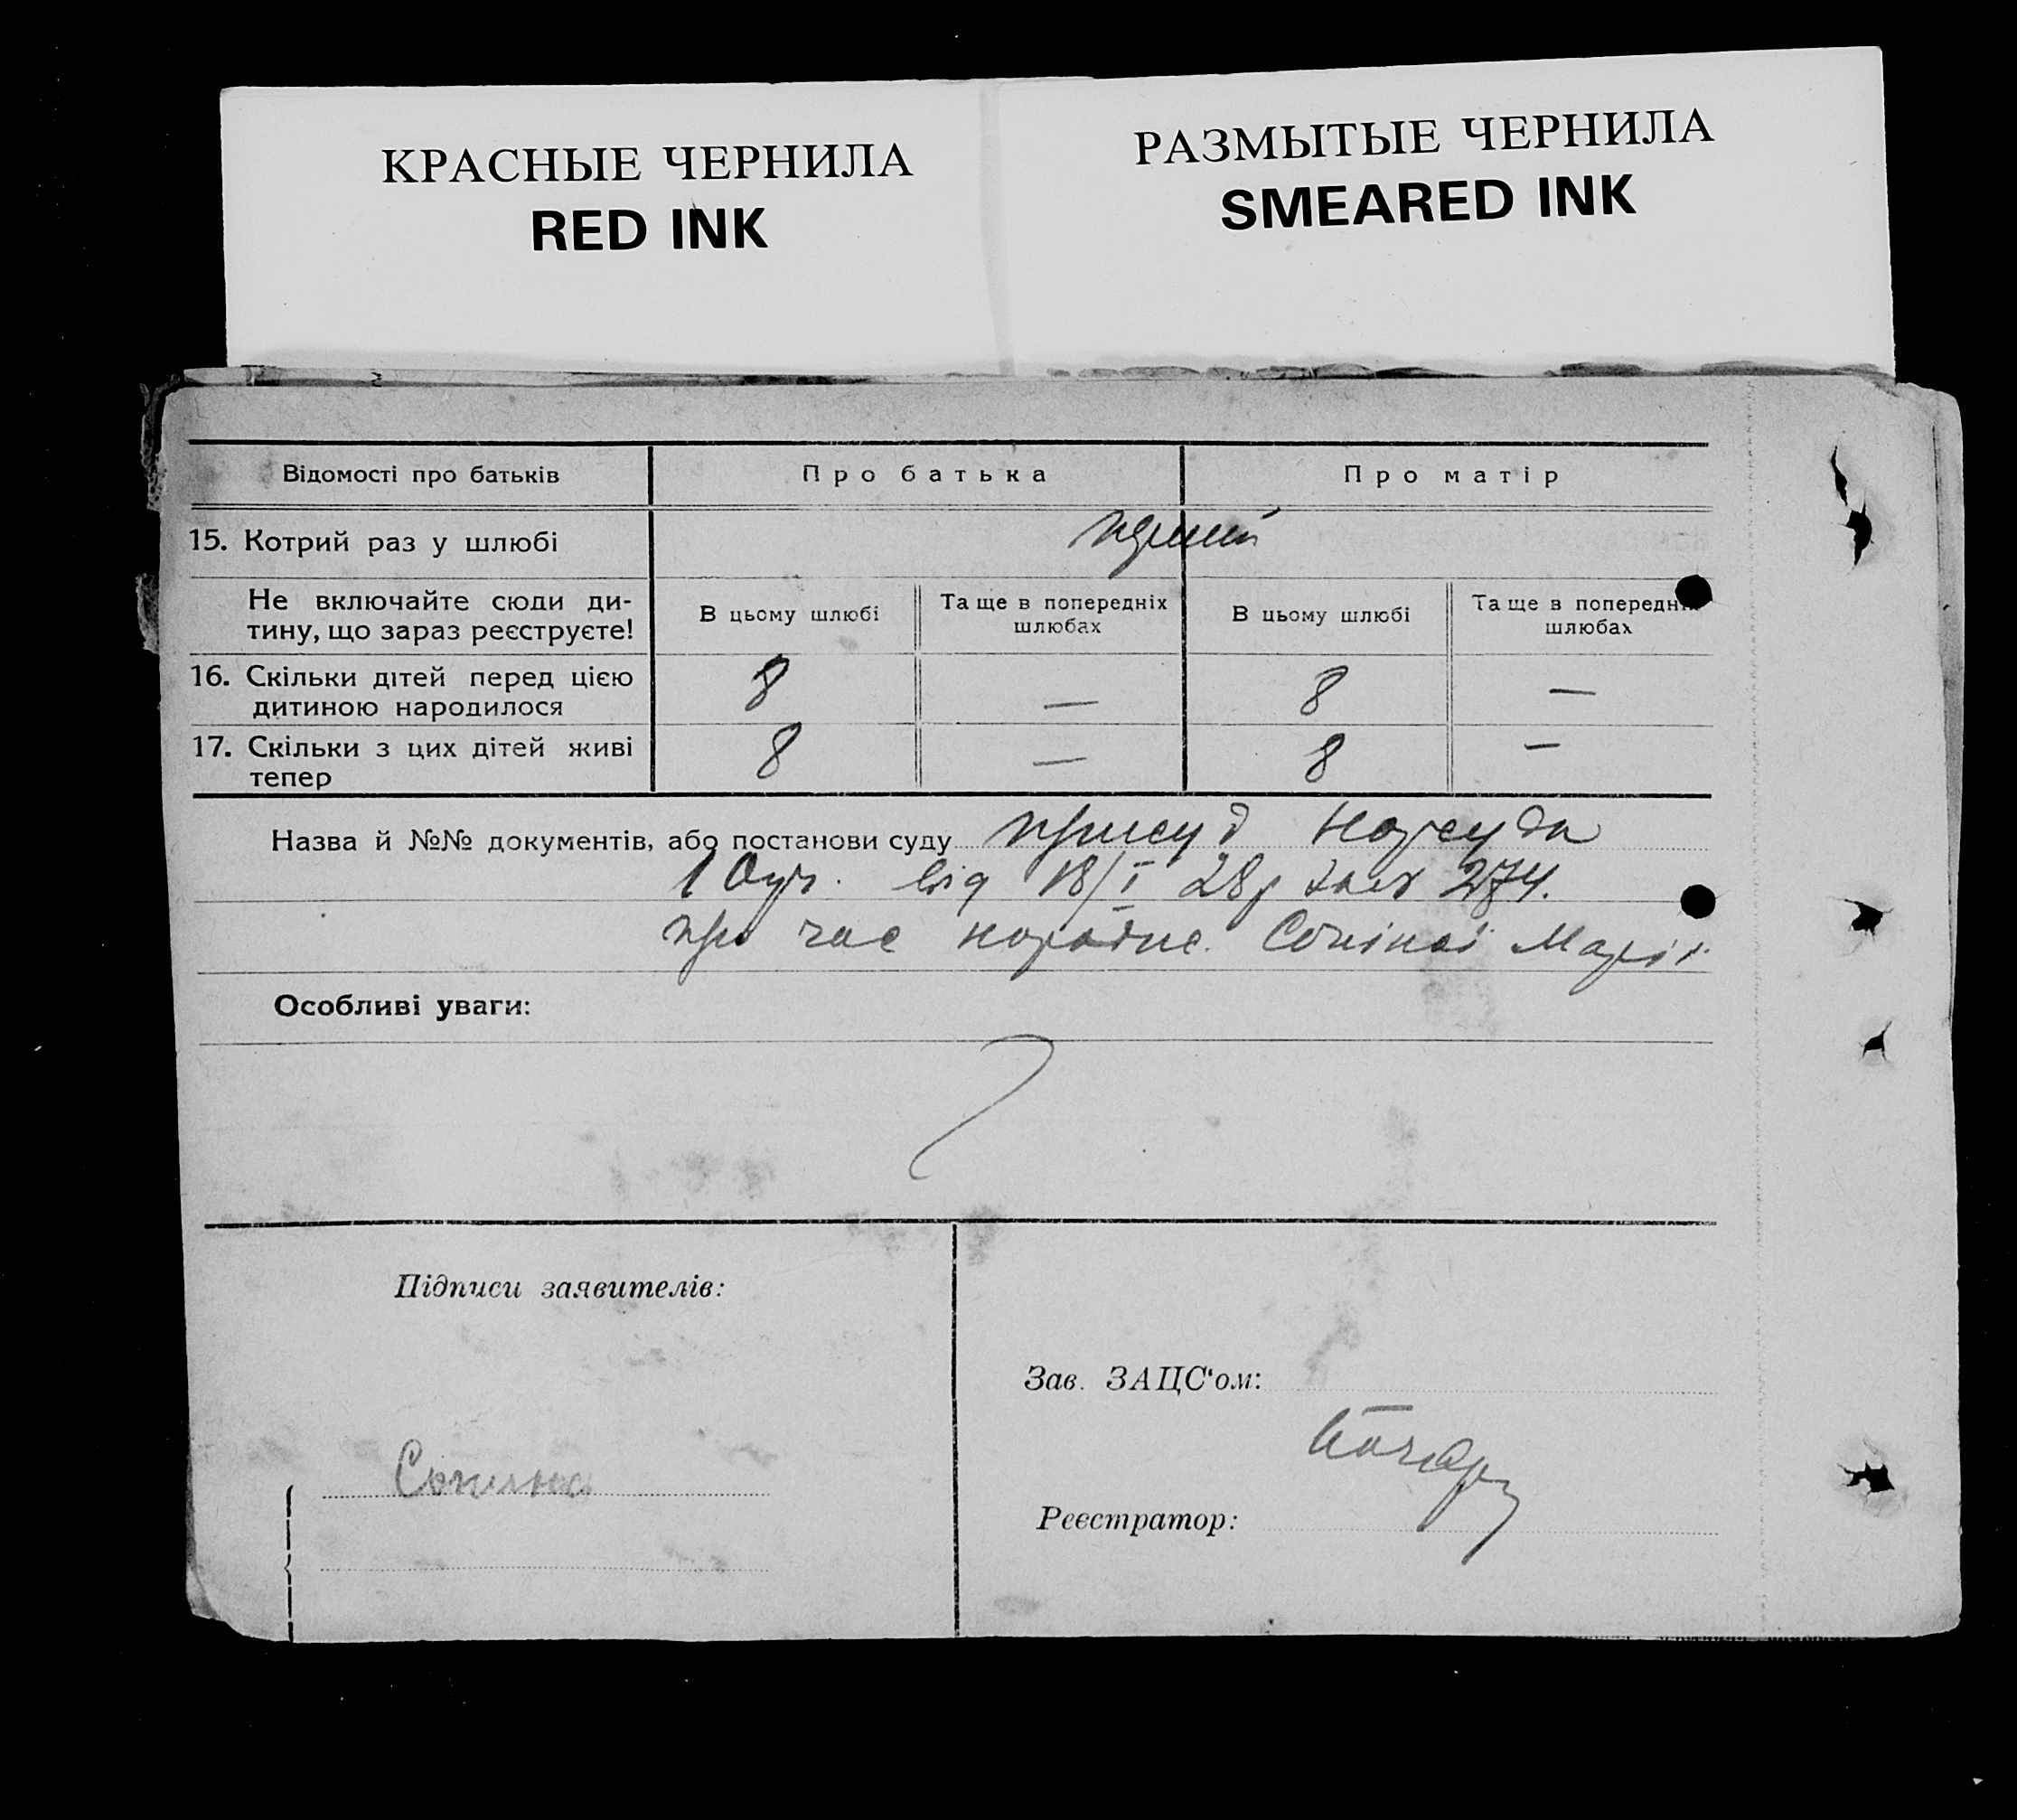 КРАСНЫЕ ЧЕРНИЛА
RED INK
РАЗМЫТЫЕ ЧЕРНИЛА
SMEARED INK
Відомості про батьків
Про батька
Про матір
15. Котрий раз у шлюбі
Не включайте сюди ди-
тину, що зараз реєструєте!
В цьому шлюбі
Та ще в попередніх
шлюбах
В цьому шлюбі
Та ще в попередніх
шлюбах
16. Скільки дітей перед цією
дитиною народилося
8 — 8 —
17. Скільки з цих дітей живі
тепер
8 — 8 —
Назва й №№ документів, або постанови суду присуд Нарсуда
1 від 18/I 28р 274.
про час Сопіної Марії
Особливі уваги:
Підписи заявителів:
Зав. ЗАЦС‘ом:
Реєстратор: